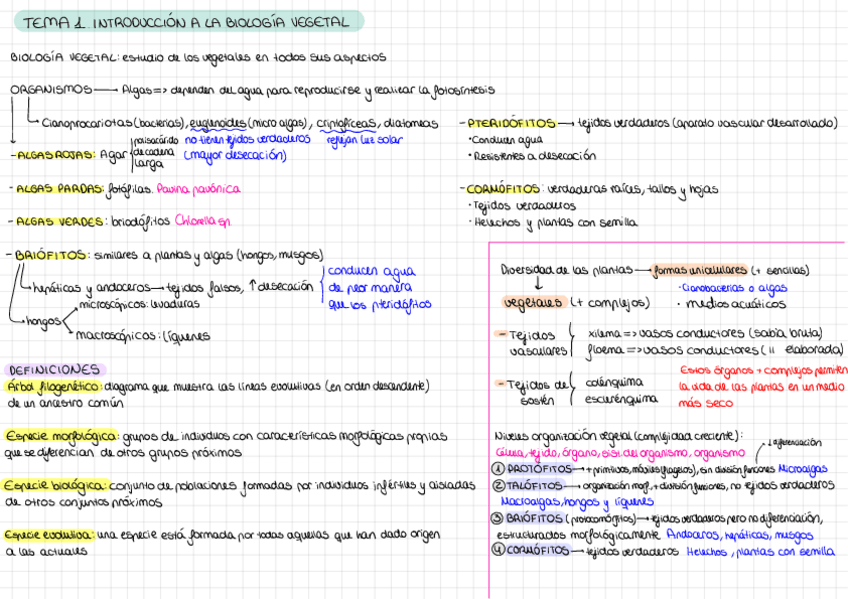 TEMA 1. INTRODUCCIÓN A LA BIOLOGÍA VEGETAL
BIOLOGÍA VEGETAL: estudio de los vegetales en todos sus aspectos
ORGANISMOS → Algas => dependen del agua para reproducirse y realizar la fotosíntesis
Cianoprocariotas (bacterias), euglenoides (micro algas), criptofíceas, diatomeas
no tienen tejidos verdaderos
reflejan luz solar
- ALGAS ROJAS: Agar
polisacárido
de cadena
larga
(mayor desecación)
- ALGAS PARDAS: fotófilas. Pavina pavónica
- ALGAS VERDES: briodófitos Chlorella sp.
- BRIÓFITOS: similares a plantas y algas (hongos, musgos)
hepáticas y andoceros → tejidos falsos, ↑ desecación
conducen agua
de peor manera
que los pteridófitos
hongos
microscópicos: levaduras
macroscópicos: líquenes
DEFINICIONES
Árbol filogenético: diagrama que muestra las líneas evolutivas (en orden descendente)
de un ancestro común
Especie morfológica: grupos de individuos con características morfológicas propias
que se diferencian de otros grupos próximos
Especie biológica: conjunto de poblaciones formadas por individuos infértiles y aisladas
de otros conjuntos próximos
Especie evolutiva: una especie está formada por todas aquellas que han dado origen
a las actuales
- PTERIDÓFITOS → tejidos verdaderos (aparato vascular desarrollado)
· Conducen agua
· Resistentes a desecación
- CORMÓFITOS: verdaderas raíces, tallos y hojas
· Tejidos verdaderos
· Helechos y plantas con semilla
Diversidad de las plantas → formas unicelulares (+ sencillas)
· Cianobacterias o algas
· medios acuáticos
vegetales (+ complejos)
- Tejidos
vasculares
xilema => vasos conductores (savia bruta)
floema => vasos conductores ( " elaborada)
- Tejidos de
sostén
colénquima
esclerénquima
Estos órganos + complejos permiten
la vida de las plantas en un medio
más seco
Niveles organización vegetal (complejidad creciente):
↓ diferenciación
Célula, tejido, órgano, sist. del organismo, organismo
① PROTÓFITOS → + primitivos, móviles (flagelos), sin división funciones Microalgas
② TALÓFITOS → organización morf., + división funciones, no tejidos verdaderos
Macroalgas, hongos y líquenes
③ BRIÓFITOS (protocormófitos) → tejidos verdaderos pero no diferenciación,
estructurados morfológicamente Andoceros, hepáticas, musgos
④ CORMÓFITOS → tejidos verdaderos Helechos, plantas con semilla